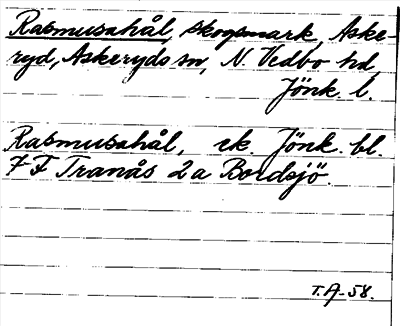 Rasmusahål, skogsmark, Aske-
ryd, Askeryds sn, N. Vedbo hd
Jönk. l.
Rasmusahål, ek. Jönk. bl.
7 F Tranås 2 a Bordsjö.
T.A-58.